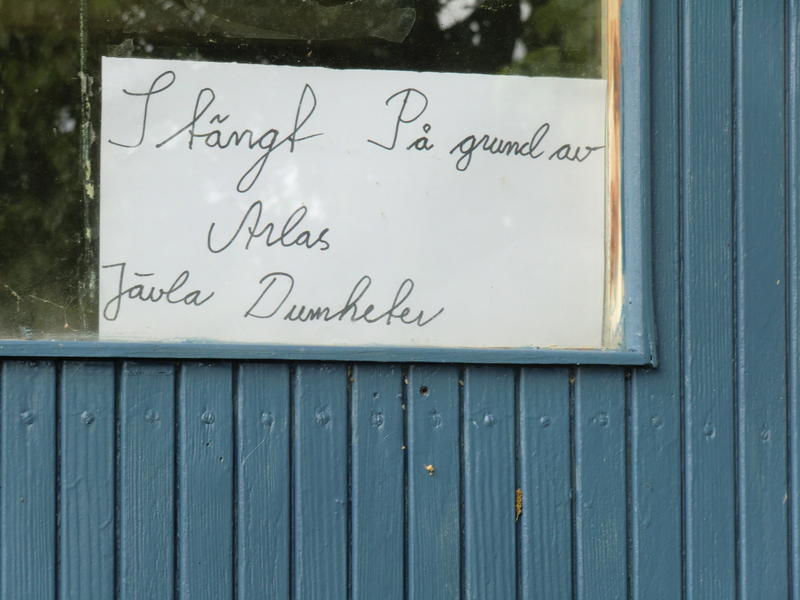 Stängt På grund av
Arlas
Jävla Dumheter